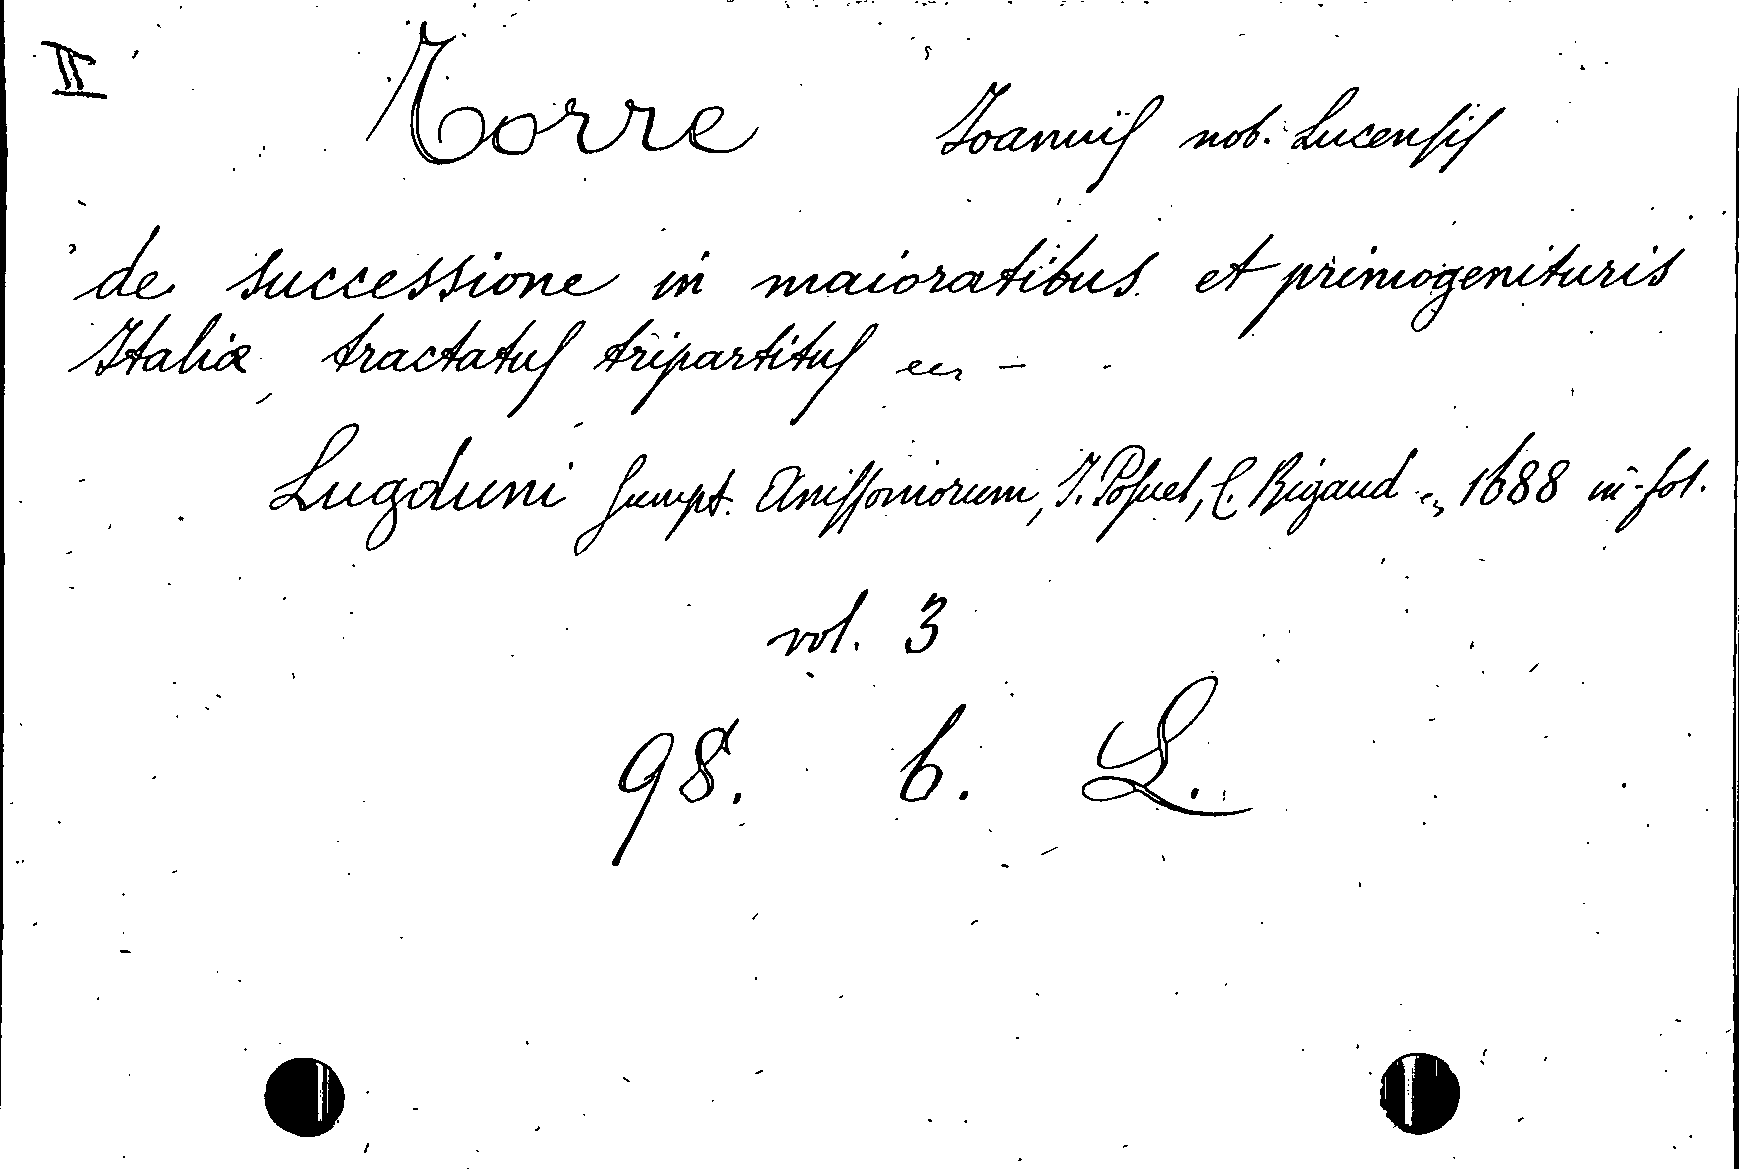 II
Torre Ioannis nob. Lucensis
de successione in maioratibus et primogenituris
Italiæ tractatus tripartitus
Lugduni sumpt. Anissoniorum, I. Posuel, C. Rigaud 1688 in-fol.
vol. 3
98. b. L.